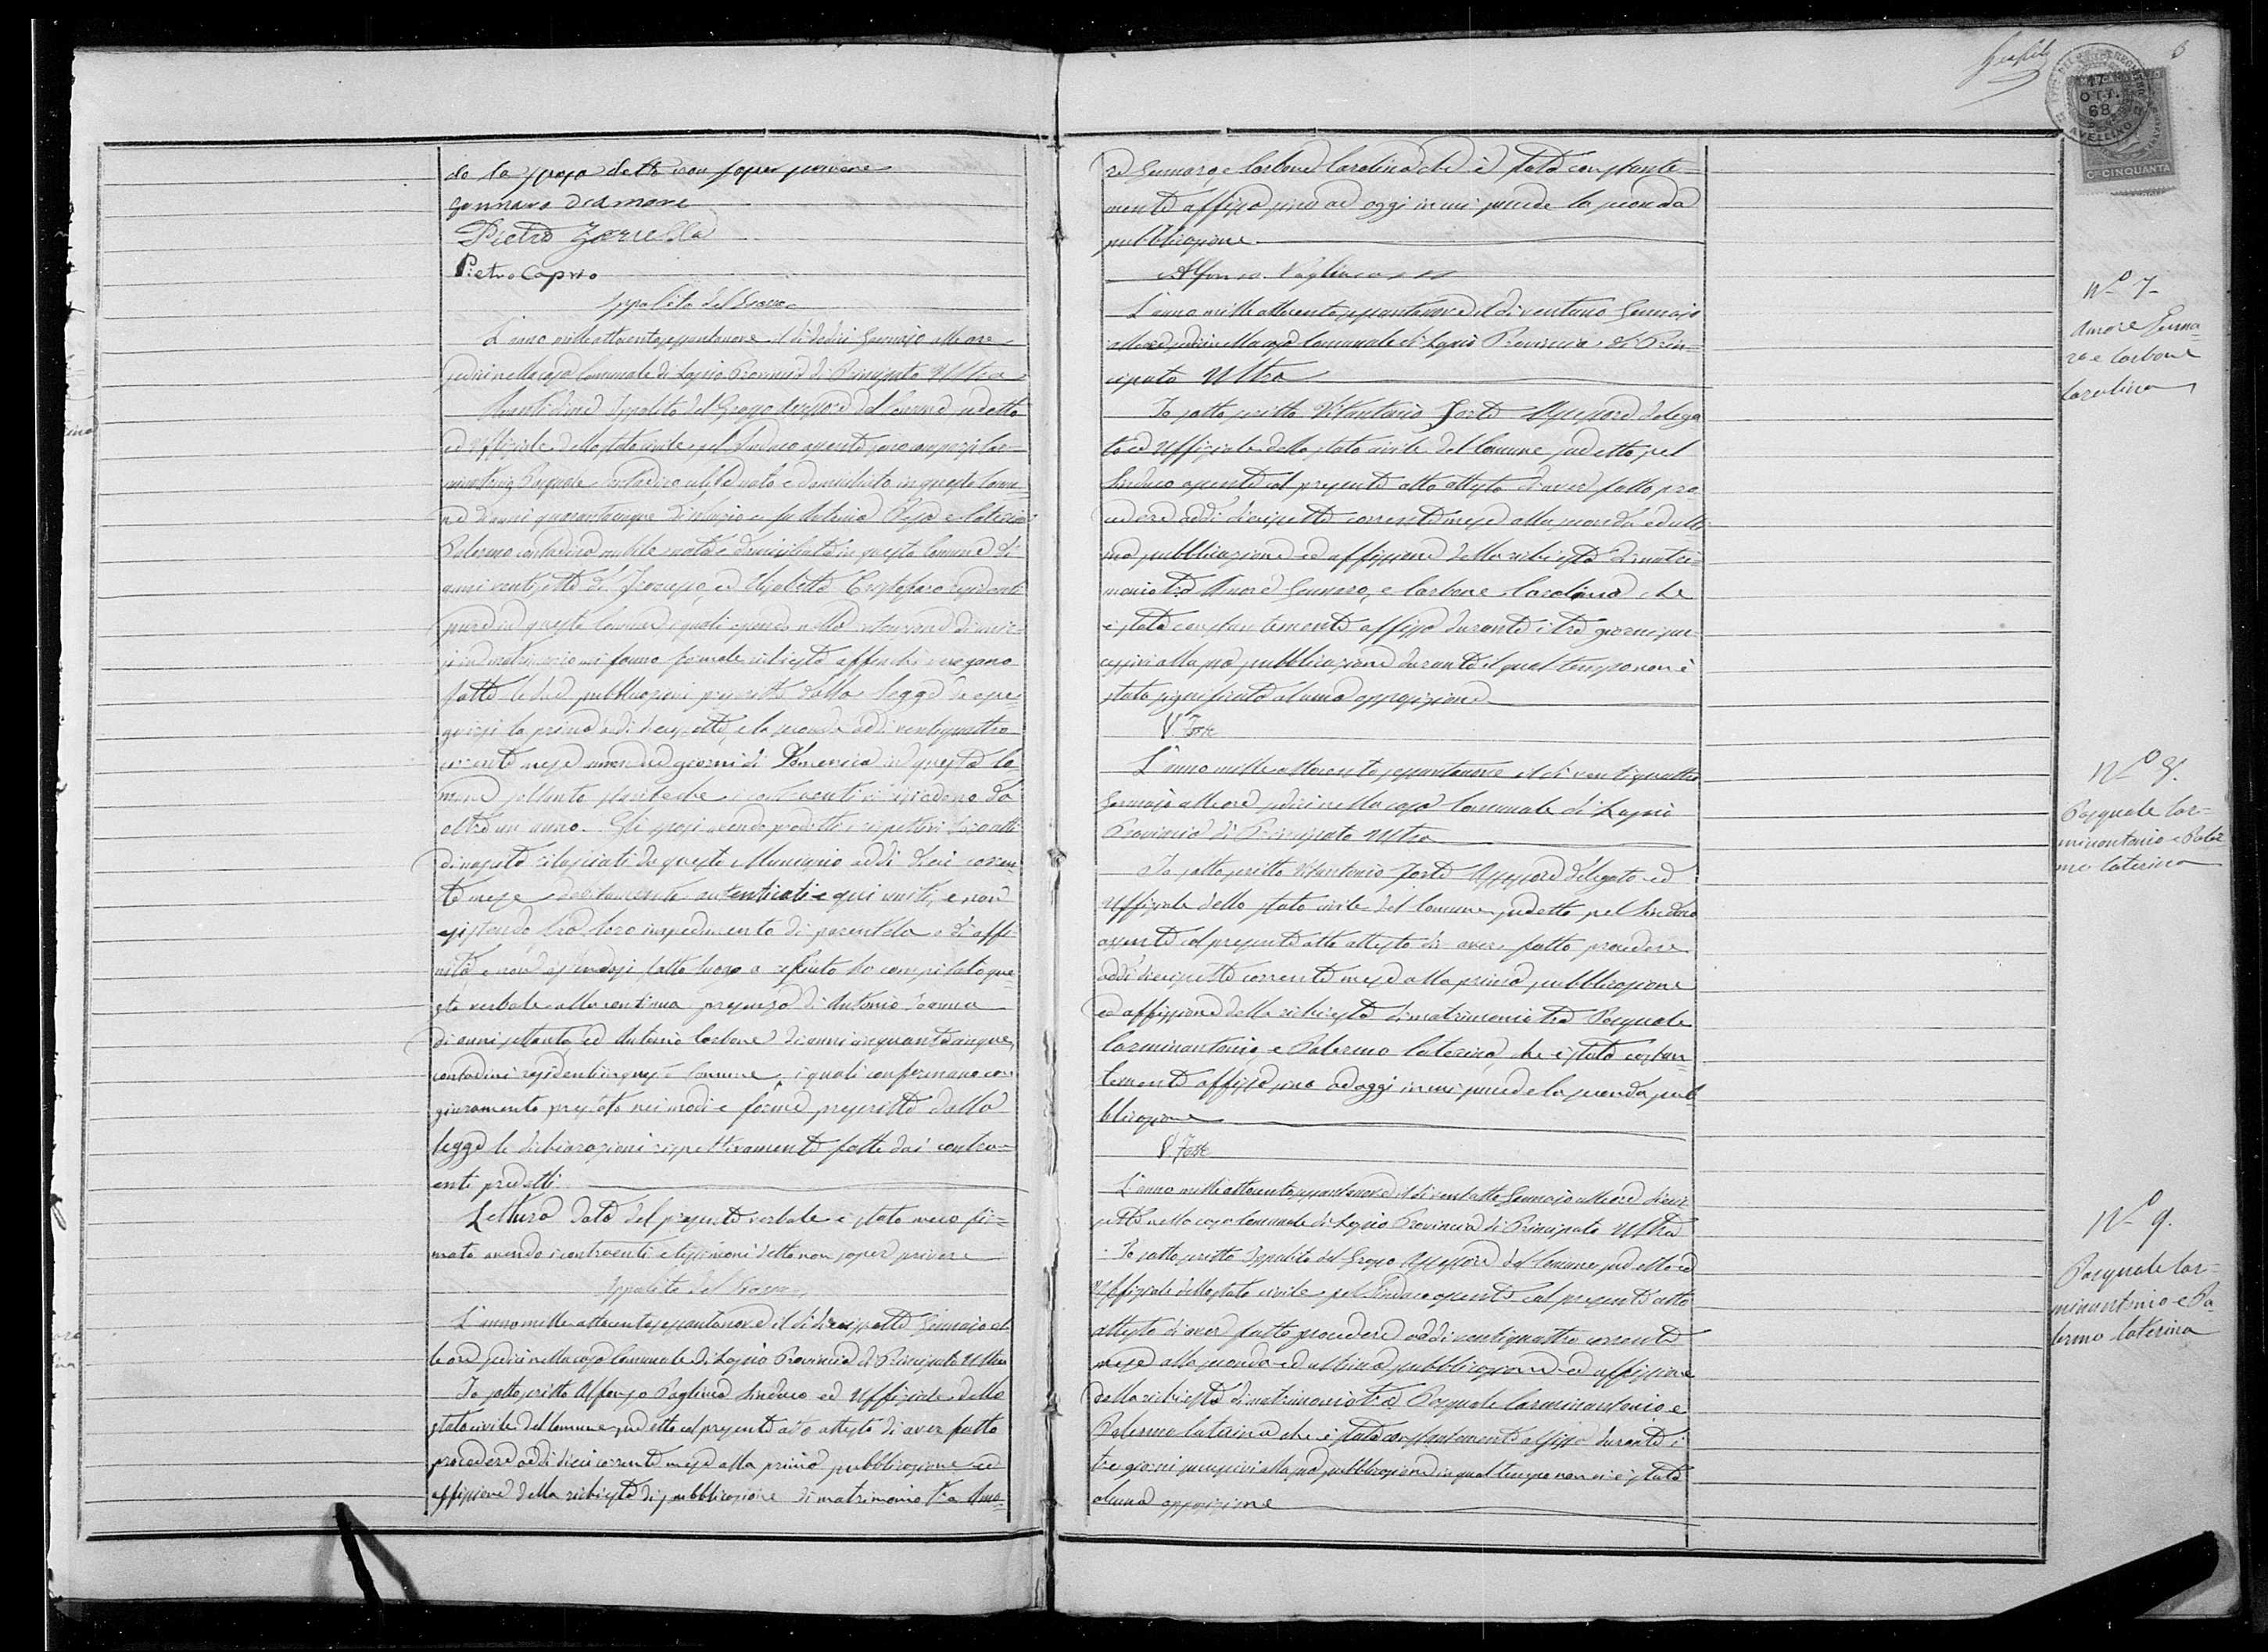 do la sposa detto non saper scrivere
Gennaro d'Amore
Pietro Zarrella
Pietro Capuo
Ippolito del Grosso
L'anno mille ottocento sessantanove il dì sedici Gennajo alle ore
sedici nella casa Comunale di Lapio Provincia di Principato Ultra
Avanti di me Ippolito del Grosso Assessore del Comune sudetto
ed Uffiziale dello stato civile pel Sindaco assente sono comparsi Car-
minantonio Pasquale contadino celibe nato e domiciliato in questo Comu-
ne di anni quarantacinque di e fu Caterina e Caterina
Palermo contadina nubile nata e domiciliata in questo Comune di
anni ventisette di Giuseppe, ed Elisabetta Cristofaro residenti
pure in questo Comune i quali essendo nella intenzione di unir-
si in matrimonio mi fanno formale richiesta affinchè vengano
fatte le due pubblicazioni prescritte dalla legge da ese-
guirsi la prima addì diecisette, e la seconda addì ventiquattro
corrente mese amendue giorni di Domenica in questo Co-
mune soltanto stantechè i contraenti vi risiedono da
oltre un anno. Gli sposi avendo prodotti i rispettivi loro atti
di nascita rilasciati da questo Municipio addì dieci corren-
te mese debitamente autenticati e qui uniti, e non
esistendo tra loro impedimento di parentela o di affi-
nità, e non essendosi fatto luogo a rifiuto ho compilato que-
sto verbale alla continua presenza di Antonio
di anni settanta, ed Antonio Carbone di anni cinquantacinque,
contadini residenti in questo Comune, i quali confermano con
giuramento prestato nei modi e forme prescritte dalla
legge le dichiarazioni rispettivamente fatte dai contra-
enti predetti
Lettura data del presente verbale è stato meco fir-
mato avendo i contraenti e testimoni detto non saper scrivere
Ippolito del Grosso
L'anno mille ottocento sessantanove il dì diecisette Gennajo al-
le ore sedici nella casa Comunale di Lapio Provincia di Principato Ultra
Io sottoscritto Alfonso Pagliuca Sindaco ed Uffiziale dello
stato civile del Comune sudetto col presente atto attesto di aver fatto
procedere addì dieci corrente mese alla prima pubblicazione ed
affissione della richiesta di pubblicazione di matrimonio tra Amo-
re Gennaro e Carbone Carolina che è stata constante-
mente affissa sino ad oggi in cui succede la seconda
pubblicazione
Alfonso Pagliuca
L'anno mille ottocento sessantanove il dì ventuno Gennajo
alle ore sedici nella casa Comunale di Lapio Provincia di Prin-
cipato Ultra
Io sottoscritto Vitantonio Forte Assessore delega
to ed Uffiziale dello stato civile del Comune sudetto pel
Sindaco assente col presente atto attesto di aver fatto pro
cedere addì diecisette corrente mese alla seconda ed ulti-
ma pubblicazione ed affissione della richiesta di matri-
monio tra Amore Gennaro, e Carbone Carolina che
è stata constantemente affissa durante i tre giorni suc-
cessivi alla sua pubblicazione durante il qual tempo non è
stata significata alcuna opposizione
V. Forte
L'anno mille ottocento sessantanove il dì ventiquattro
Gennajo alle ore sedici nella casa Comunale di Lapio
Provincia di Principato Ultra
Io sottoscritto Vitantonio Forte Assessore delegato ed
Uffiziale dello stato civile del Comune sudetto pel Sindaco
assente col presente atto attesto di aver fatto procedere
addì diecisette corrente mese alla prima pubblicazione
ed affissione della richiesta di matrimonio tra Pasquale
Carminantonio e Palermo Caterina, che è stata constan
temente affissa sino ad oggi in cui succede la seconda pub
blicazione
V. Forte
L'anno mille ottocento sessantanove il dì ventotto Gennajo alle ore dieci-
sette nella casa Comunale di Lapio Provincia di Principato Ultra
Io sottoscritto Ippolito del Grosso Assessore del Comune sudetto ed
Uffiziale dello stato civile pel Sindaco assente col presente atto
attesto di aver fatto procedere addì ventiquattro corrente
mese alla seconda ed ultima pubblicazione ed affissione
della richiesta di matrimonio tra Pasquale Carminantonio e
Palermo Caterina che è stata constantemente affissa durante i
tre giorni successivi alla sua pubblicazione in qual tempo non vi è stata
alcuna opposizione
6
17
OTT.
68
AVELLINO
Ct CINQUANTA
No 7
Amore Genna-
ro e Carbone
Carolina
No 8.
Pasquale Car-
minantonio e Paler
mo Caterina
No 9.
Pasquale Car-
minantonio e Pa-
lermo Caterina